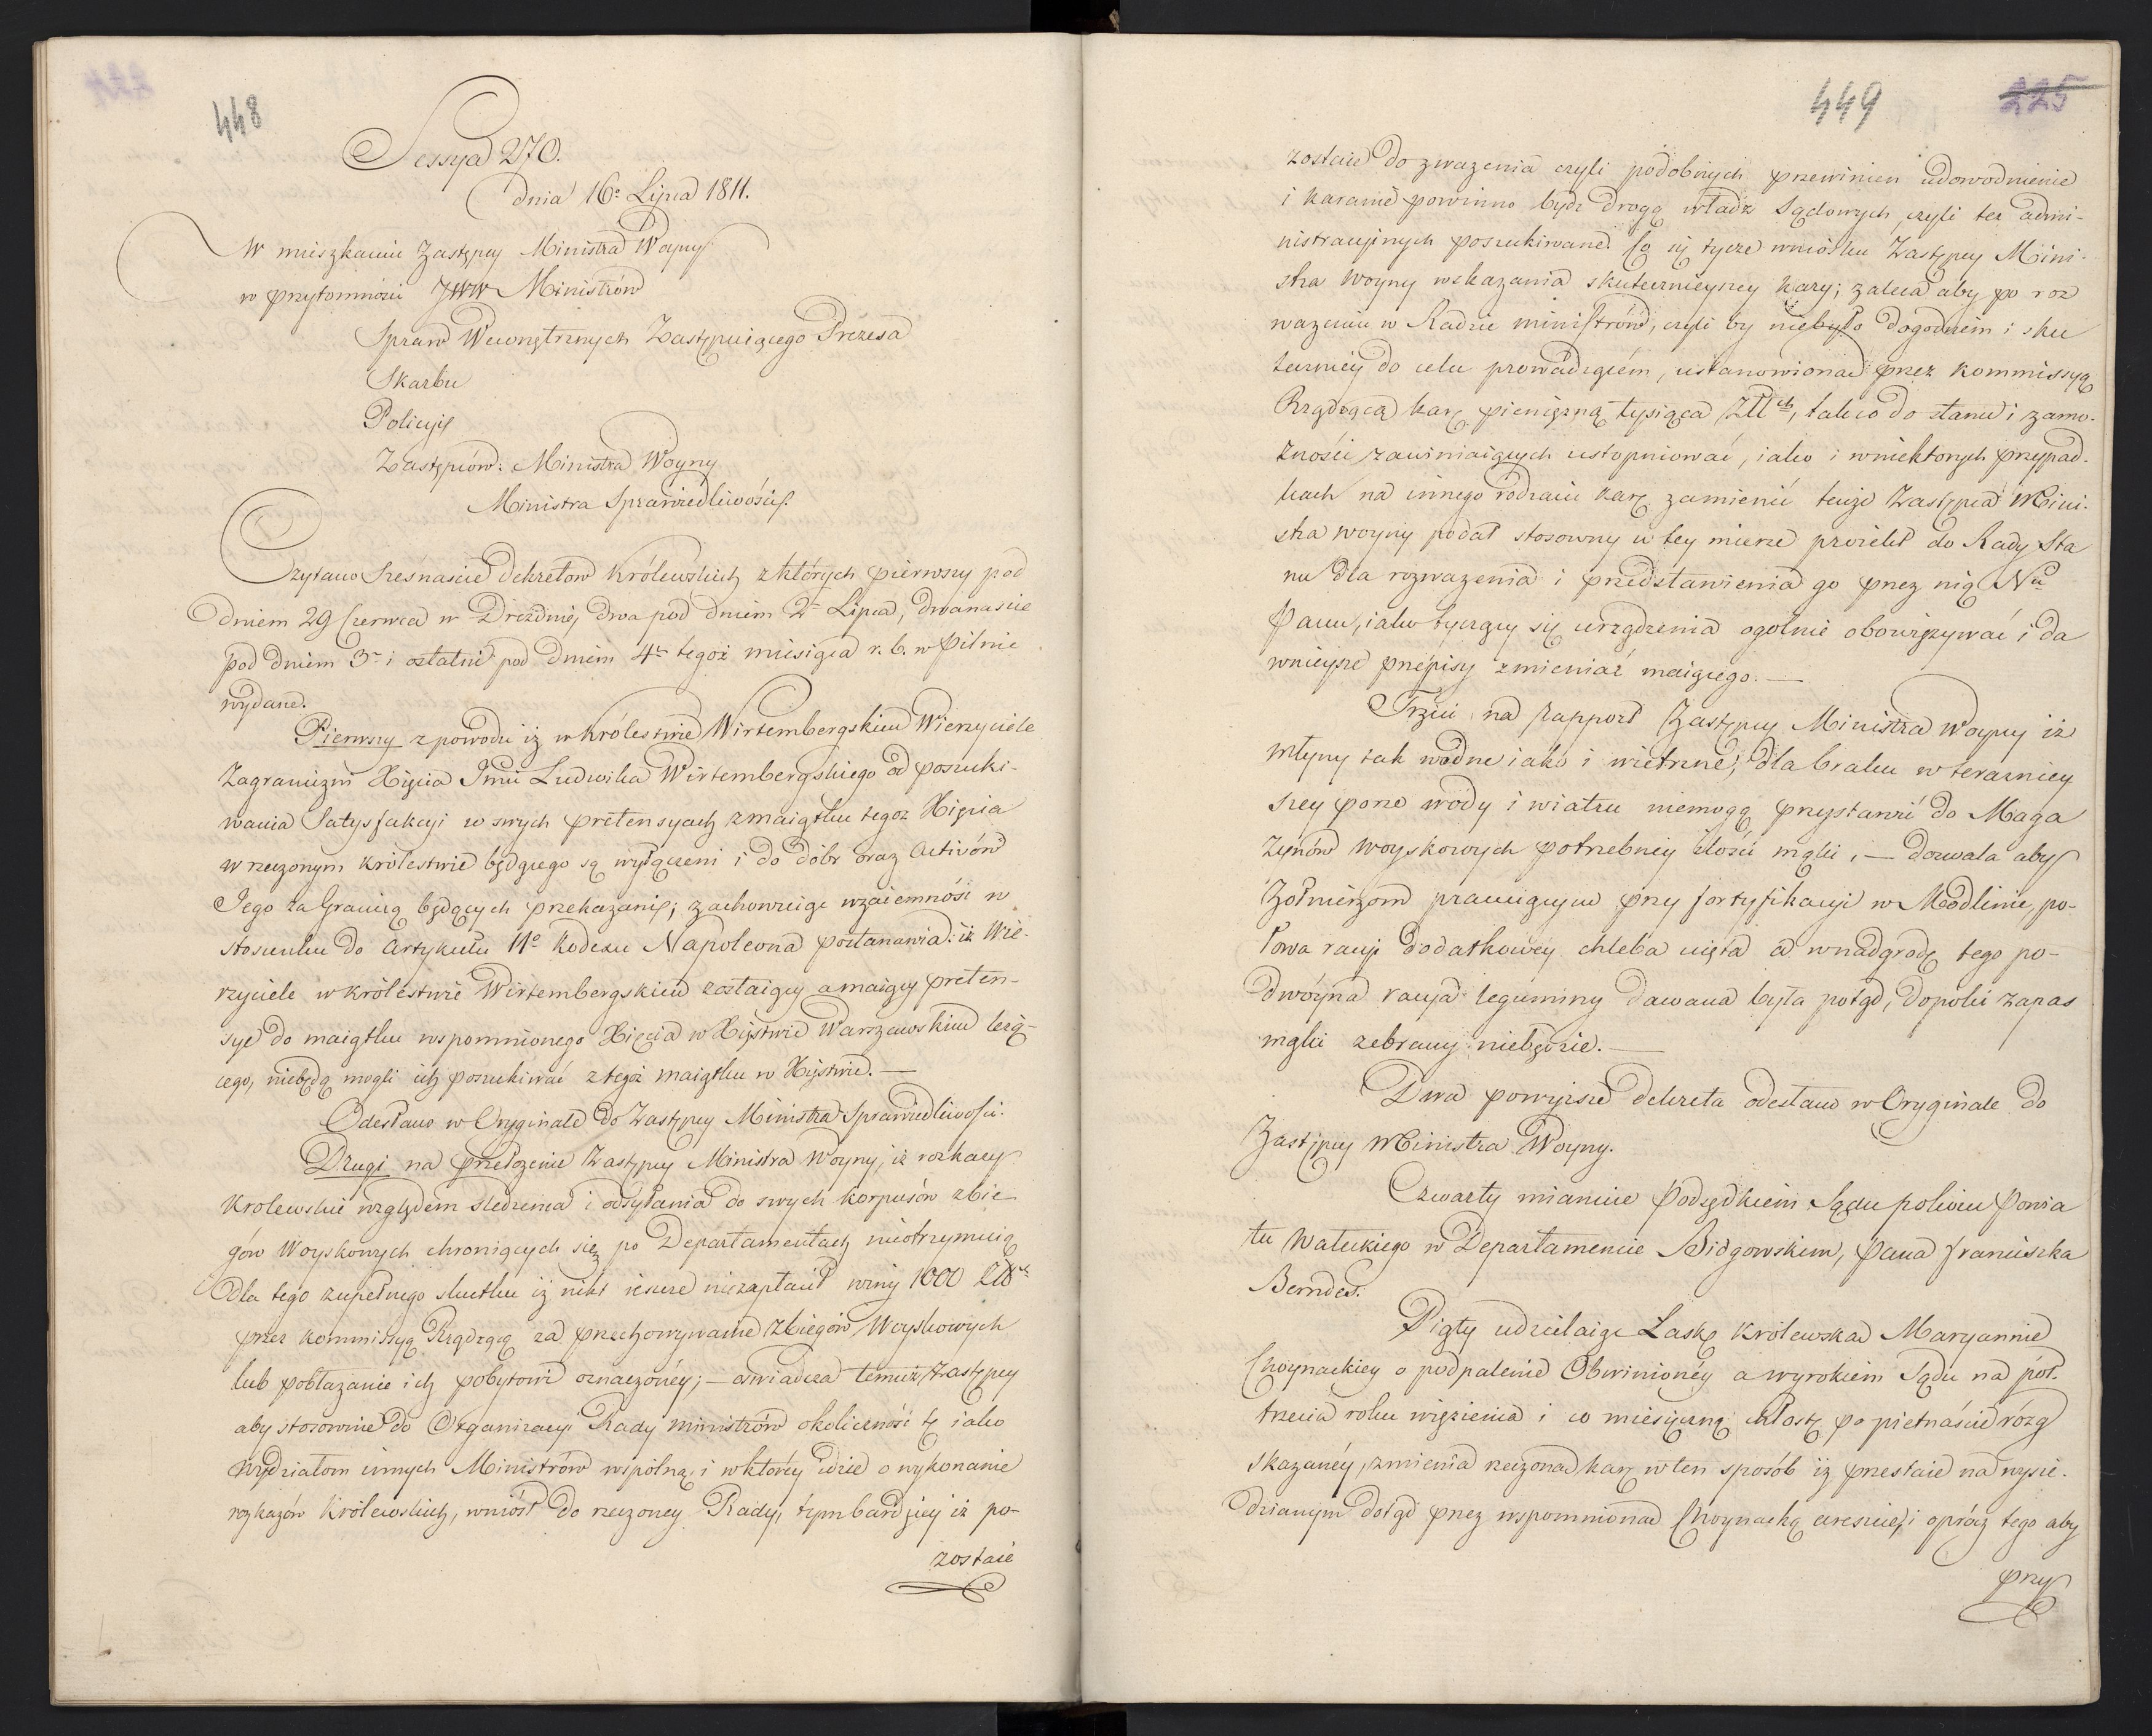 448
Sessya 270.
dnia 16o Lipca 1811.
W mieszkaniu Zastępcy Ministra Woyny
w przytomności JWW Ministrów
Spraw Wewnętrznych Zastępuiącego Prezesa
Skarbu
Policyi
Zastępców: Ministra Woyny
Ministra Sprawiedliwości.
Czytano Szesnaście dekretow Królewskich z których pierwszy pod
dniem 29 Czerwca w Dreźdnie, dwa pod dniem 2o Lipca, dwanaście
pod dniem 3o i ostatni pod dniem 4o tegoż miesiąca r. b. w Pilnie
wydane.
Pierwszy z powodu iż w Królestwie Wirtembergskiem Wierzyciele
Zagraniczni Xięcia Jmci Ludwika Wirtembergskiego od poszuki-
wania Satysfakcyi w swych pretensyach z maiątku tegoż Xięcia
w rzeczonym Królestwie będącego są wyłączeni i do dóbr oraz Activów
Jego za Granicą będących przekazani; zachowuiąc wzaiemność w
stosunku do Artykułu 11o Kodexu Napoleona postanawia: iż Wie-
rzyciele w Królestwie Wirtembergskiem zostaiący a maiący preten-
sye do maiątku wspomnionego Xięcia w Xięstwie Warszawskiem leżą-
cego, niebędą mogli ich poszukiwać z tegoż maiątku w Xięstwie. —
Odesłano w Oryginale do Zastępcy Ministra Sprawiedliwości.
Drugi na przełożenie Zastępcy Ministra Woyny, iż rozkazy
Krolewskie względem śledzenia i odsyłania do swych korpusów zbie
gów Woyskowych chroniących się po Departamentach nieotrzymuią
dla tego zupełnego skutku iż nikt ieszcze niezapłacił winy 1000 Złł
przez Kommissyą Rządzącą za przechowywanie Zbiegów Woyskowych
lub pobłażanie ich pobytowi oznaczoney; — oświadcza temuż Zastępcy
aby stosownie do Organizacyi Rady Ministrów okoliczność tę iako
Wydziałom innych Ministrów wspólną i w którey idzie o wykonanie
rozkazów Królewskich, wniósł do rzeczoney Rady, tym bardziey iż po-
zostaie
449 225
zostaie do zważenia czyli podobnych przewinień udowodnienie
i karanie powinno bydź drogą władz Sądowych, czyli też admi-
nistracyinych poszukiwane. Co się tycze wniosku Zastępcy Mini-
stra Woyny wskazania skutecznieyszey kary; zaleca aby po roz
ważeniu w Radzie ministrów, czyli by niebyło dogodnem i sku
teczniey do celu prowadzącém, ustanowioną przez Kommissyą
Rządzącą karę pieniężną tysiąca Złłch, tako do stanu i zamo-
żności zawiniaiących ustopniować, iako i w niektorych przypad-
kach na innego rodzaiu karę zamienić tenże Zastępca Mini-
stra woyny podał stosowny w tey mierze proiekt do Rady Sta
nu dla rozważenia i przedstawienia go przez nią Nu
Panu, iako tyczący się urządzenia ogólnie obowiązywać i da
wnieysze przepisy zmieniać maiącego. —
Trzeci na rapport Zastępcy Ministra Woyny iż
młyny tak wodne iako i wietrzne, dla braku w teraźniey
szey porze wody i wiatru niemogą przystawić do Maga
zynów woyskowych potrzebney ilości mąki, — dozwala aby
Żołnierzom pracuiącym przy fortyfikacyi w Modlinie, po-
łowa racyi dodatkowey chleba ucięta a w nadgrodę tego po-
dwóyna racya leguminy dawana była potąd, dopoki zapas
mąki zebrany niebędzie. —
Dwa powyższe dekreta odesłano w Oryginale do
Zastępcy Ministra Woyny.
Czwarty mianuie Podsędkiem Sądu pokoiu Powia
tu Wałeckiego w Departamencie Bidgowskim, Pana Franciszka
Berndes.
Piąty udzielaiąc Łaskę Królewską Maryannie
Choynackiey o podpalenie Obwinioney a wyrokiem Sądu na pół-
trzecia roku więzienia i co miesięczną chłostę po piętnaście rózg
skazaney, zmienia rzeczoną karę w ten sposób iż przestaie na wysie-
dzianym dotąd przez wspomnioną Choynacką areszcie, i oprócz tego aby
przy